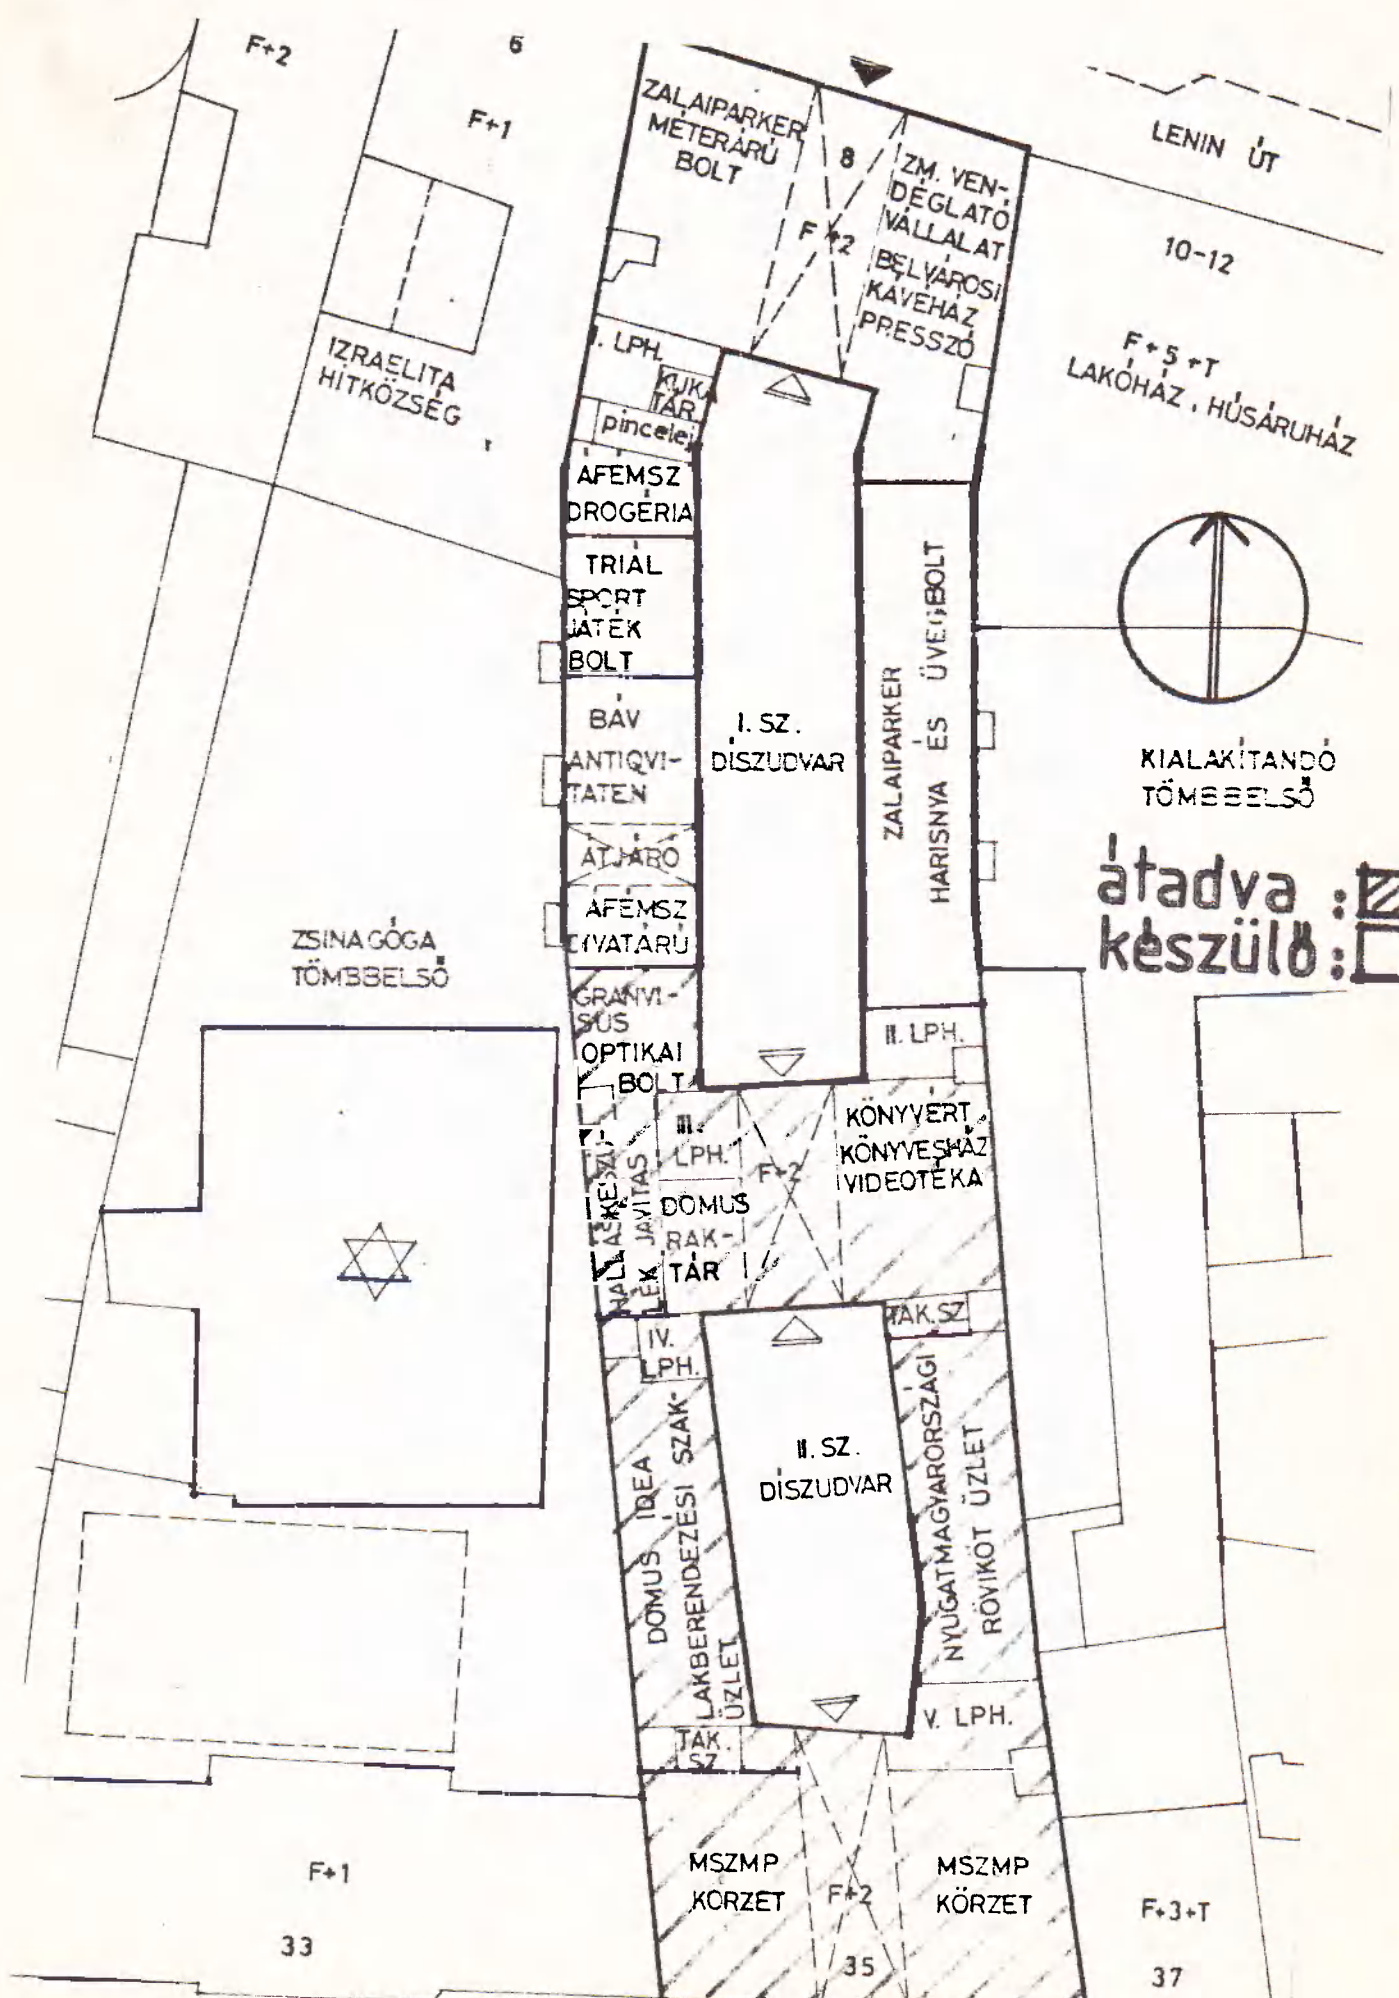 F+2
6
F+1
ZALAIPARKER
MÉTERÁRÚ
BOLT
8
F+2
ZM. VEN-
DÉGLÁTÓ
VÁLLALAT
BELVÁROSI
KÁVÉHÁZ
PRESSZÓ
LENIN ÚT
10-12
F+5+T
LAKÓHÁZ, HÚSÁRUHÁZ
IZRAELITA
HITKÖZSÉG
I. LPH.
KUKA
TÁR.
pincelej
ÁFÉMSZ
DROGÉRIA
TRIÁL
SPORT
JÁTÉK
BOLT
BÁV
ANTIQVI-
TÄTEN
ÁTJÁRÓ
ÁFÉMSZ
DIVATÁRÚ
GRANVI-
SUS
OPTIKAI
BOLT
I. SZ.
DÍSZUDVAR
ZALAIPARKER
HARISNYA ÉS ÜVEGBOLT
KIALAKÍTANDÓ
TÖMBBELSŐ
átadva :
készülő :
ZSINAGÓGA
TÖMBBELSŐ
II. LPH.
HALLÁSKÉSZÜ-
LÉK JAVÍTÁS
III.
LPH.
DOMUS
RAK-
TÁR
F+2
KÖNYVÉRT
KÖNYVESHÁZ
VIDEOTÉKA
TAK.SZ
IV.
LPH.
DOMUS IDEA
LAKBERENDEZÉSI SZAK-
ÜZLET
II. SZ.
DÍSZUDVAR
NYUGATMAGYARORSZÁGI
RÖVIKÖT ÜZLET
V. LPH.
TAK.
SZ
MSZMP
KÖRZET
F+2
35
MSZMP
KÖRZET
F+1
33
F+3+T
37